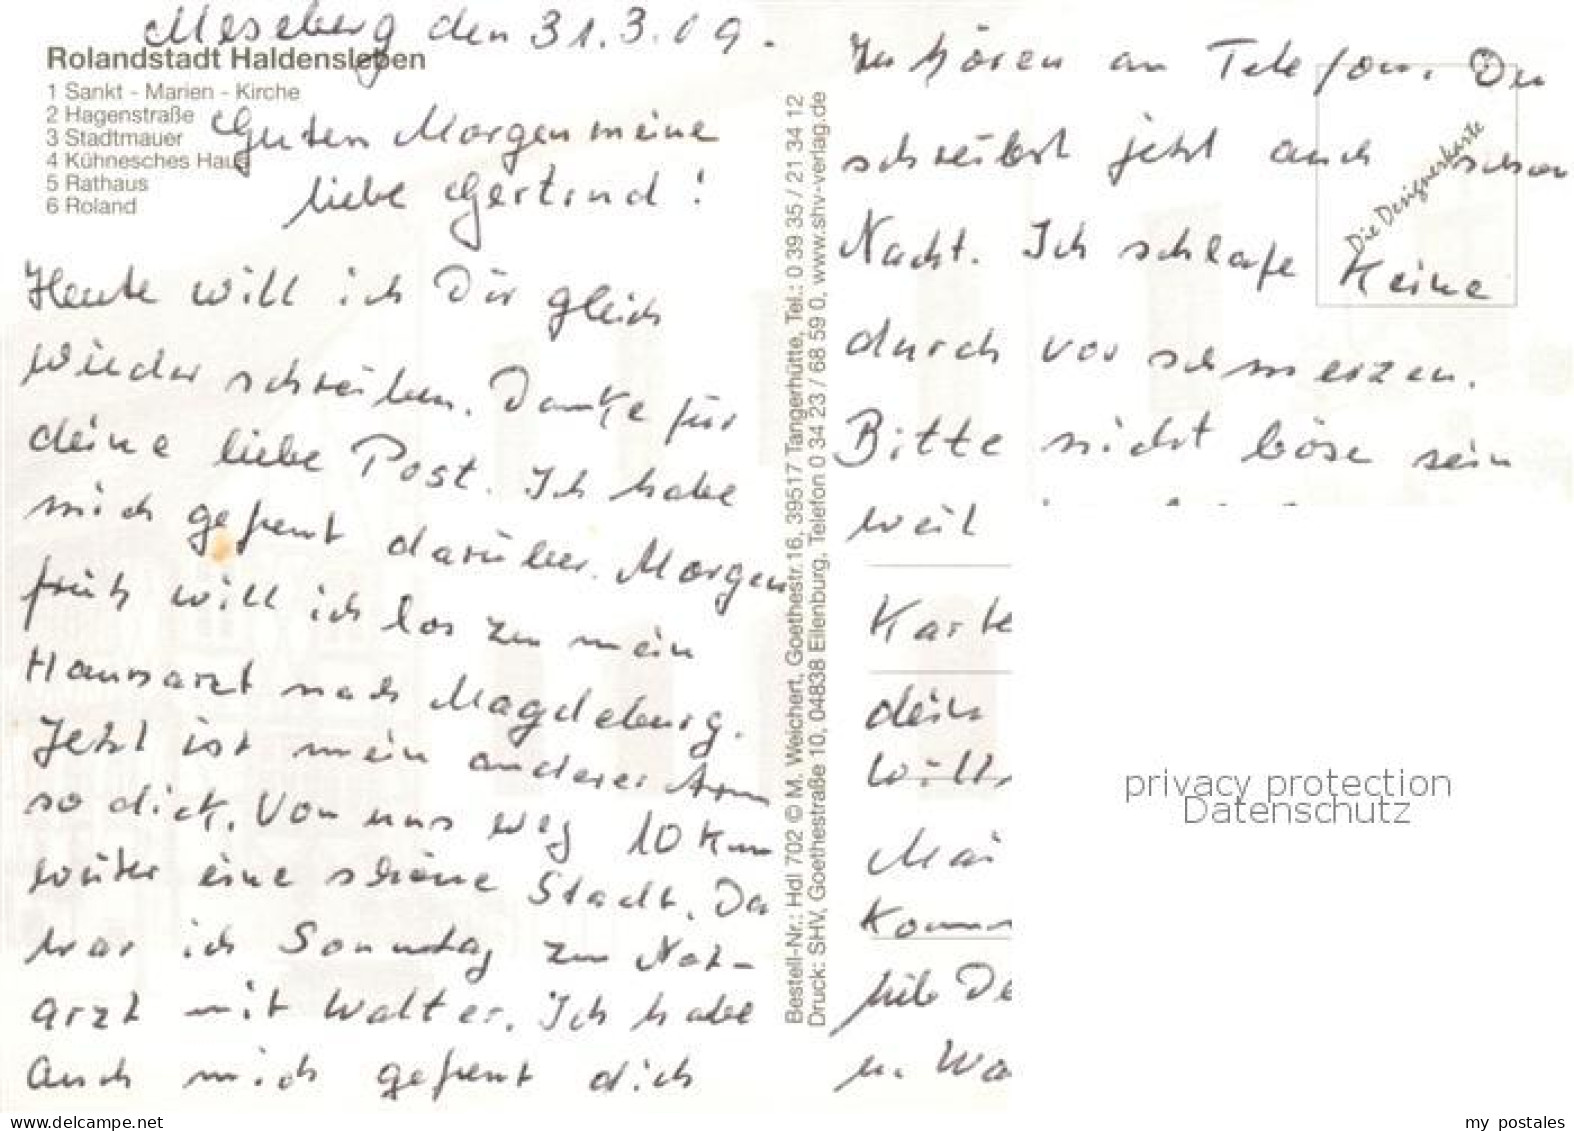 Meseberg den 31.3.09.
Rolandstadt Haldensleben
1 Sankt - Marien - Kirche
2 Hagenstraße
3 Stadtmauer
4 Kühnesches Haus
5 Rathaus
6 Roland
Guten Morgen meine
liebe Gertrud!
Heute will ich Dir gleich
wieder schreiben. Danke für
deine liebe Post. Ich habe
mich gefreut darüber. Morgen
früh will ich los zu mein
Hausarzt nach Magdeburg.
Jetzt ist mein anderer Arm
so dick. Von uns weg 10 km
weiter eine schöne Stadt. Da
war ich Sonntag zu Not-
arzt mit Walter. Ich habe
auch mich gefreut dich
Bestell-Nr.: Hdl 702 © M. Weichert, Goethestr.16, 39517 Tangerhütte, Tel.: 0 39 35 / 21 34 12
Druck: SHV, Goethestraße 10, 04838 Eilenburg, Telefon 0 34 23 / 68 59 0, www.shv-verlag.de
Zu hören am Telefon. Du
schreibst jetzt auch schon
Nacht. Ich schlafe keine
durch vor schmerzen.
Bitte nicht böse sein
weil
Karte
dein
will
Mai
Komm
lieb De
u. Wa
Die Designerkarte
privacy protection
Datenschutz
www.delcampe.net
my postales